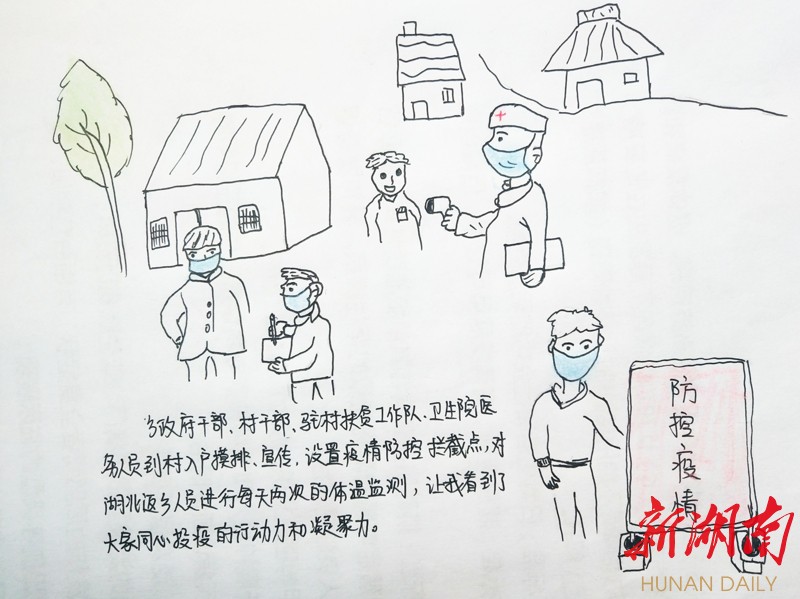 防
控
疫
情
乡政府干部、村干部、驻村扶贫工作队、卫生院医
务人员到村入户摸排、宣传,设置疫情防控拦截点,对
湖北返乡人员进行每天两次的体温监测,让我看到了
大家同心投疫的行动力和凝聚力。
新湖南
HUNAN DAILY